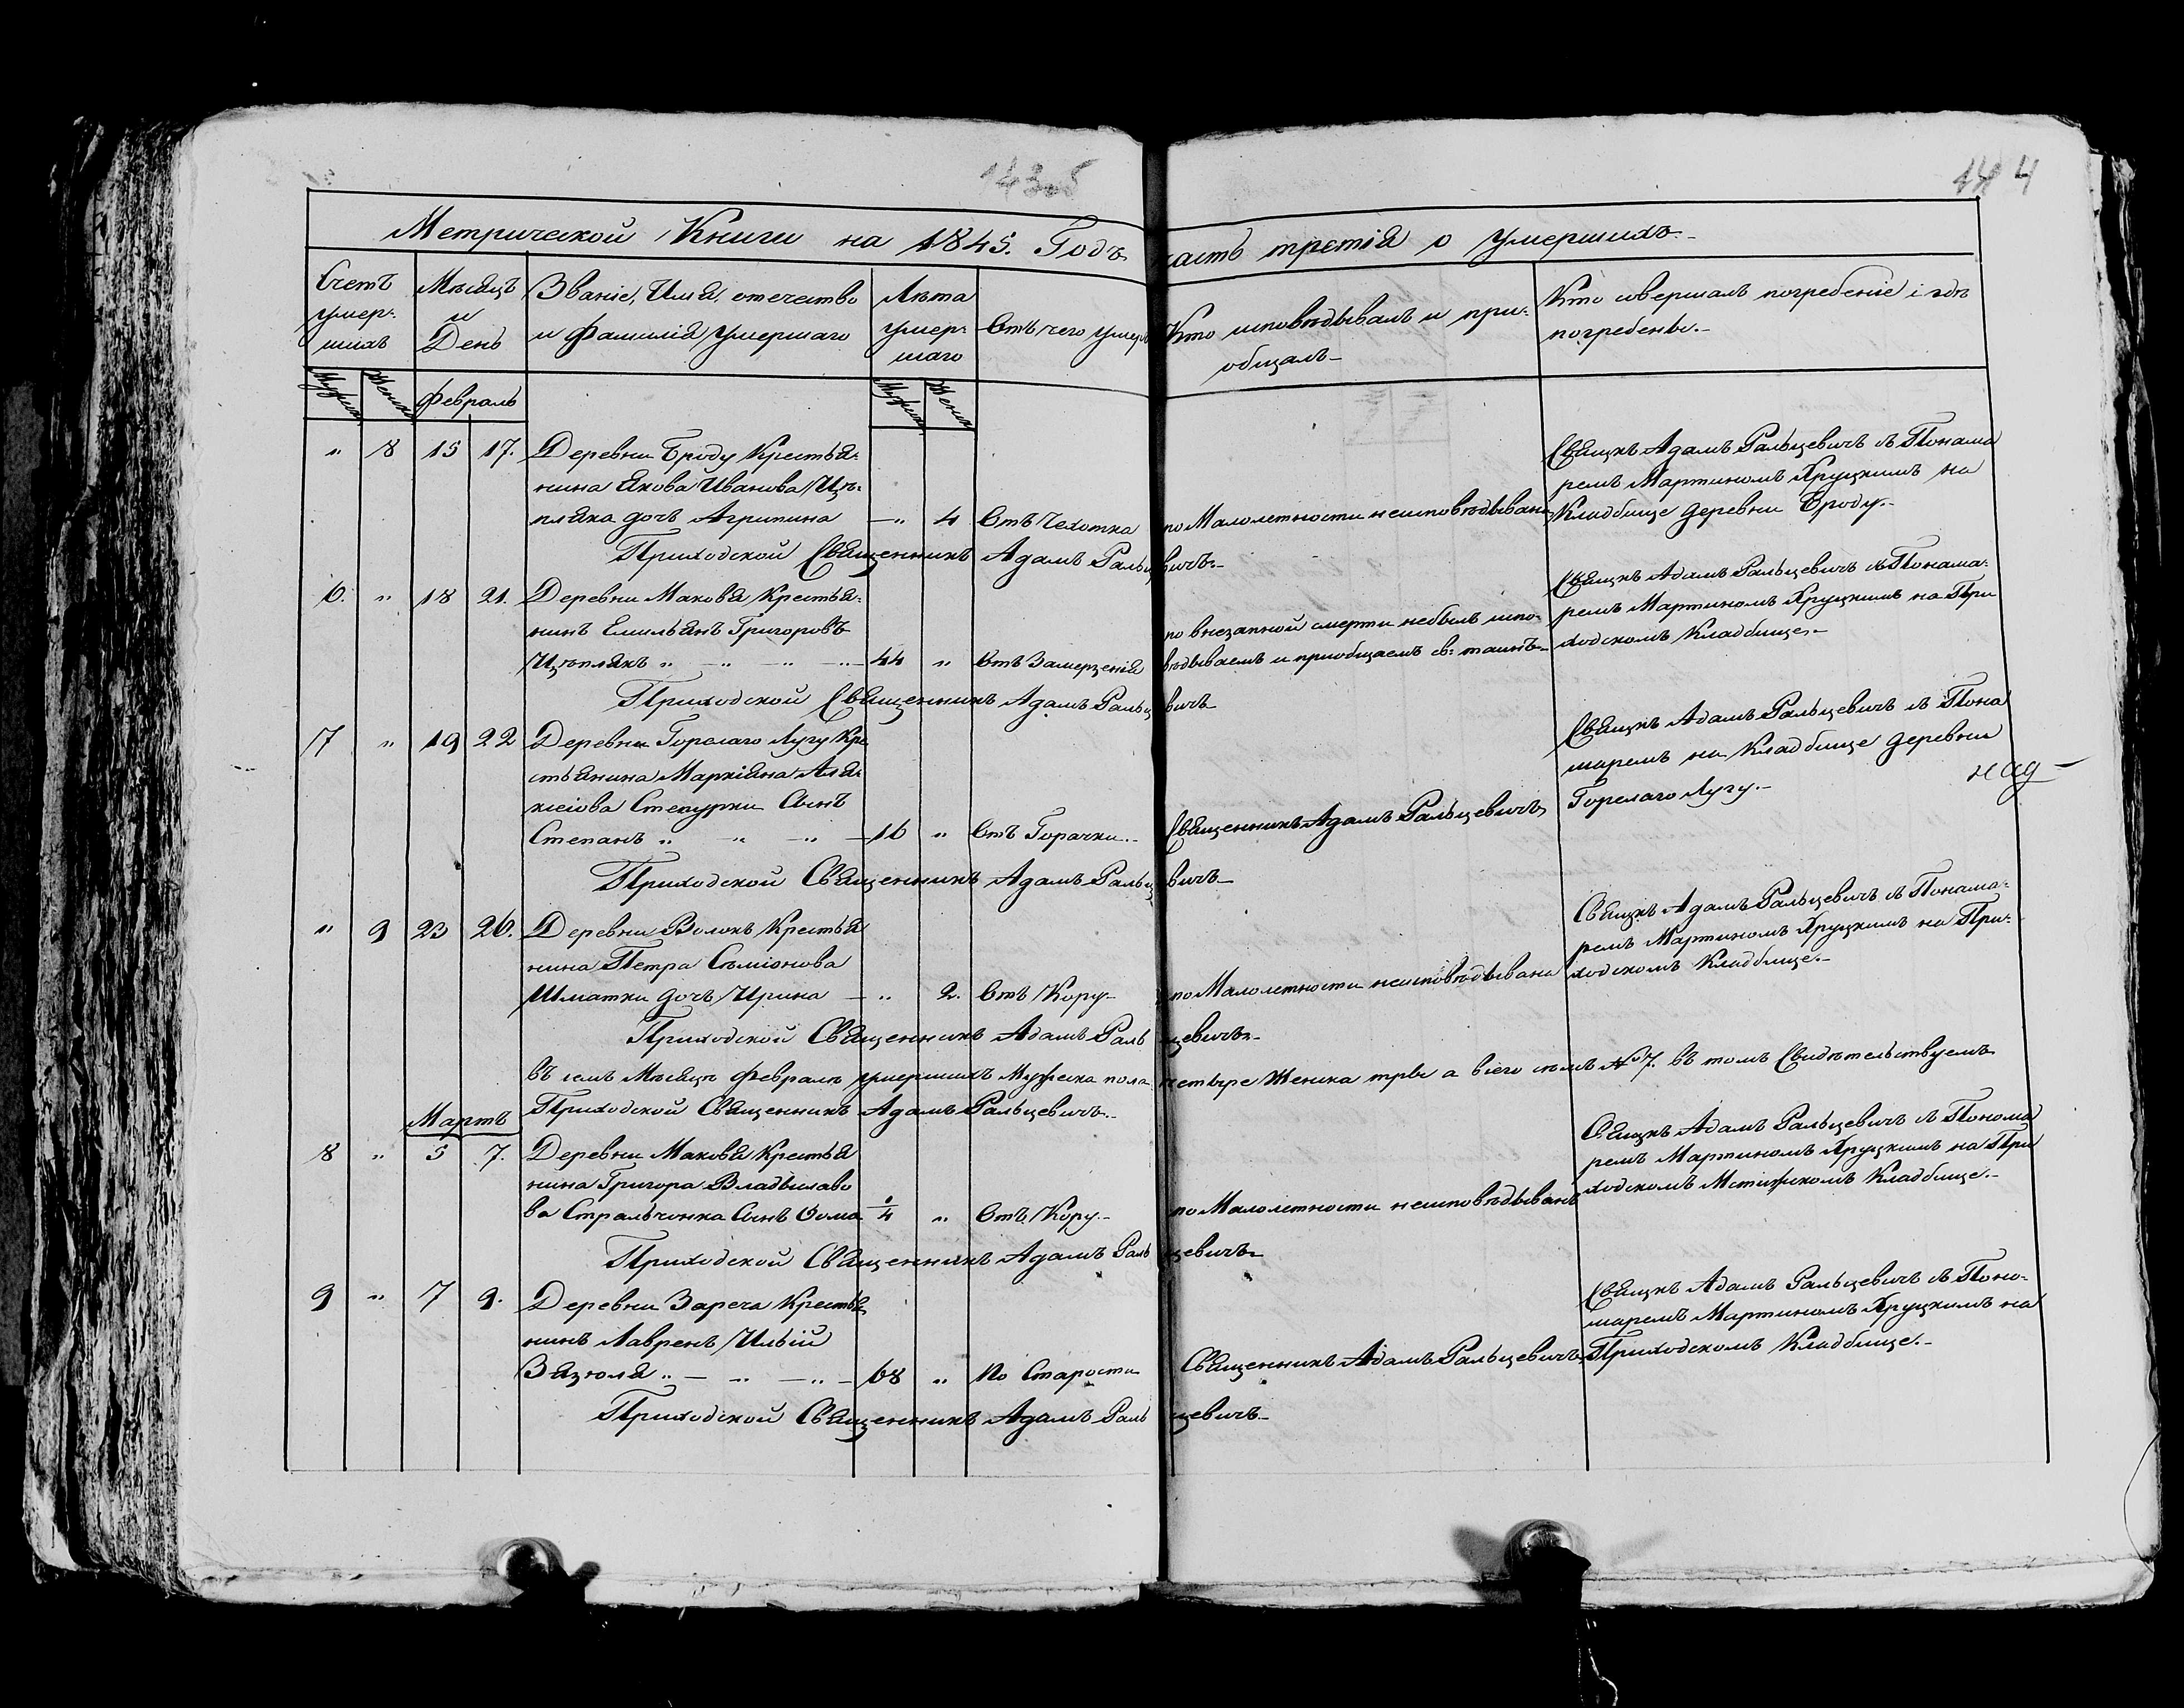 143об
144
Метрической Книги на 1845. Годъ часть третія о Умершихъ.
Счетъ умер: шихъ
Мѣсяцъ и День
Званіе, Имя, отечество и Фамилія Умершаго
Лѣта умер: шаго
Отъ чего умеръ
Кто исповѣдывалъ и при: общалъ
Кто совершалъ погребеніе і гдѣ погребены.
Мужеск Женск
Февраль
Мужеск Женск
" 8 15 17. Деревни Броду Крестья:
нина Якова Иванова Цѣ:
пляка дочъ Агрипина — " 4 Отъ Чехотка
по Малолетности неисповѣдывана
Свящнкъ Адамъ Ральцевичъ съ Понама
ремъ Мартиномъ Хруцкимъ на
Кладбище деревни Броду.
Приходской Священникъ Адамъ Ральцевичъ
6. " 18 21. Деревни Маковя Крестья:
нинъ Емильянъ Григоровъ
Цѣплякъ " — " — " — 44 " Отъ Замерзенія
по внезапной смерти небылъ испо:
вѣдываемъ и приобщаемъ св: таинъ
Свящнкъ Адамъ Ральцевичъ съ Понама:
ремъ Мартиномъ Хруцкимъ на При
ходскомъ Кладбище.
Приходской Священникъ Адамъ Ральцевичъ
7 " 19 22 Деревни Горелаго Лугу Кре
стьянина Маркіяна Аля:
ксіова Степурки Сынъ
Степанъ " — " — " — 16 " Отъ Горачки.
Священникъ Адамъ Ральцевичъ
Свящнкъ Адамъ Ральцевичъ съ Пона
маремъ на Кладбище деревни
Горелаго Лугу.
Приходской Священникъ Адамъ Ральцевичъ
" 9 23 26. Деревни Волокъ Крестья
нина Петра Сѣміонова
Шматки дочъ Ирина — " 2. Отъ Кору
по Малолетности неисповѣдывана
Свящнкъ Адамъ Ральцевичъ съ Понама:
ремъ Мартиномъ Хруцкимъ на При:
ходскомъ Кладбище.
Приходской Священникъ Адамъ Ральцевичъ
въ семъ Мѣсяцѣ Февралѣ умершихъ Мужеска пола четыре Женска тры а всего сѣмъ №7. въ томъ Свидѣтельствуемъ
Приходской Священникъ Адамъ Ральцевичъ.
Мартъ
8 " 5 7. Деревни Маковя Крестья
нина Григора Владыславо
ва Стральчонка Сынъ Ѳома 1/4 " Отъ Кору.
по Малолетности неисповѣдыванъ
Свящнкъ Адамъ Ральцевичъ съ Понома
ремъ Мартиномъ Хруцкимъ на При
ходскомъ Мстижскомъ Кладбище.
Приходской Священникъ Адамъ Ральцевичъ
9 " 7 9. Деревни Зареча Крестья
нинъ Лавренъ Ильій
Вязюля " — " — " — 68 " По Старости
Священникъ Адамъ Ральцевичъ
Свящнкъ Адамъ Ральцевичъ съ Поно:
маремъ Мартиномъ Хруцкимъ на
Приходскомъ Кладбище.
Приходской Священникъ Адамъ Ральцевичъ